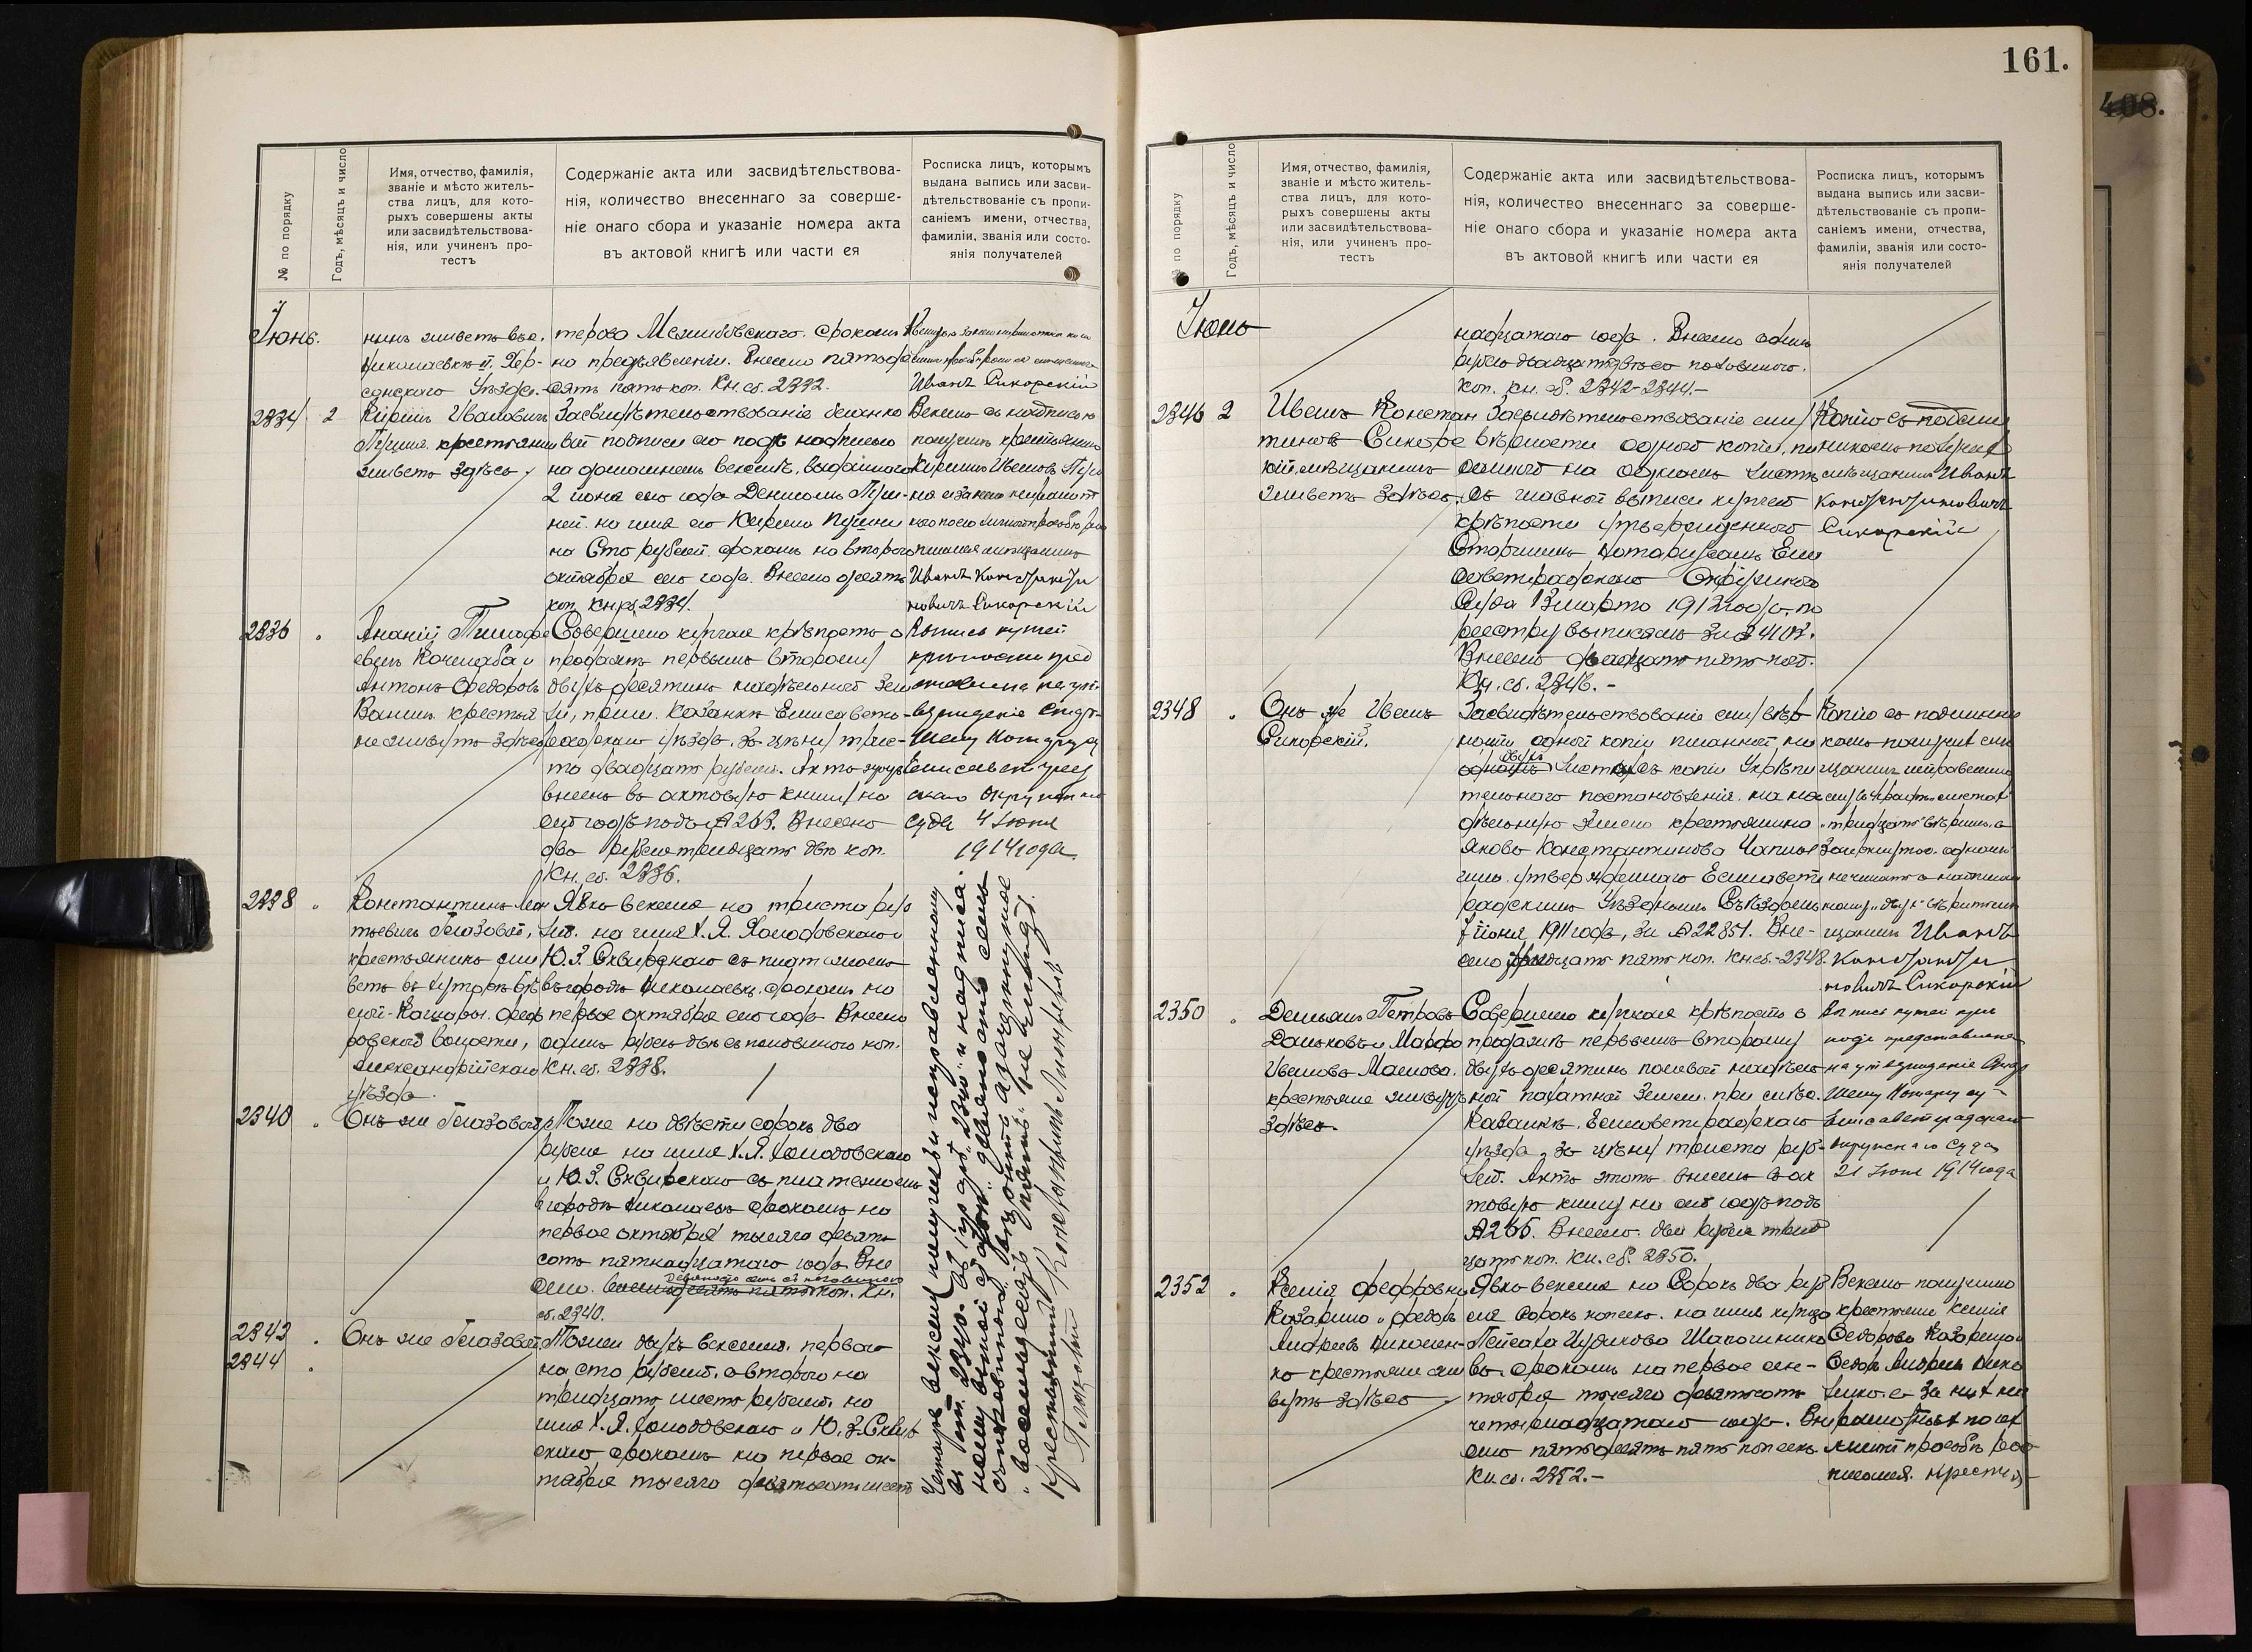 161.
408.
№ по порядку
Годъ, мѣсяцъ и число
Имя, отчество, фамилія,
званіе и мѣсто житель-
ства лицъ, для кото-
рыхъ совершены акты
или засвидѣтельствова-
нія, или учиненъ про-
тестъ
Содержаніе акта или засвидѣтельствова-
нія, количество внесеннаго за соверше-
ніе онаго сбора и указаніе номера акта
въ актовой книгѣ или части ея
Росписка лицъ, которымъ
выдана выпись или засви-
дѣтельствованіе съ пропи-
саніемъ имени, отчества,
фамиліи, званія или состо-
янія получателей
Іюнь.
нинъ живетъ въ
Николаевкѣ II, Хер-
сонскаго Уѣзда.
срокомъ
по предъявленіи. Внесено пятьде-
сятъ пять коп. Кн. сб. 2332.
Иванъ Сикорскій
2334 2
Кирилъ Ивановичъ
крестьянинъ
живетъ здѣсь.
Засвидѣтельствованіе бланко
вой подписи его подъ надписью
на домашнемъ векселѣ, выданномъ
2 іюня сего года
на имя его Кирила
на Сто рублей срокомъ на второго
октября сего года. Внесено десять
коп. Кн. сб. 2334.
Вексель съ надписью
получилъ крестьянинъ
Кирилъ Ивановъ
Иванъ Константи
новичъ Сикорскій
2336 "
Ананій Тимофе
евъ и
Антонъ Федоровъ
крестья
не живутъ здѣсь
Совершена купчая крѣпость о
продажѣ первымъ второму
двухъ десятинъ надѣльной зем
ли, при с. Казанкѣ Елисавето-
градскаго уѣзда, за цѣну трис-
та двадцать рублей. Актъ этотъ
внесенъ въ актовую книгу на
сей годъ подъ № 263. Внесено
два рубля тридцать двѣ коп.
Кн. сб. 2336.
Выпись купчей
крѣпости пред
ставлена на ут-
вержденіе Стар-
шему Нотаріусу
Елисаветград
скаго Окружнаго
Суда 4 Іюня
1914 года.
2338 "
Константинъ Леон
тьевичъ Глазовой,
крестьянинъ жи
ветъ въ
ровской волости,
Александрійскаго
уѣзда.
Явка векселя на триста руб
лей. на имя Х. Я. Холодовскаго и
Ю. З. Сквирскаго съ платежомъ
въ городѣ Николаевѣ, срокомъ на
первое октября сего года Внесено
одинъ рубль двѣ съ половиною коп.
Кн. сб. 2338.
2340 "
Онъ же Глазовой
Тоже на двѣсти сорокъ два
рубля на имя Х. Я. Холодовскаго
и Ю. З. Сквирскаго съ платежомъ
въ городѣ Николаевѣ срокомъ на
первое октября тысяча девять-
сотъ пятнадцатаго года. Вне
девяносто семь съ половиною
сено. коп. Кн.
сб. 2340.
2342 "
2344 "
Онъ же Глазовой
Тоже двухъ векселей. перваго
на сто рублей. а второго на
тридцать шесть рублей. на
имя Х. Я. Холодовскаго и Ю. З. Сквир
скаго срокомъ на первое ок-
тября тысяча девятьсотъ шест
Четыре векселя получилъ и исправленному
въ ст. 2340. и надписа
ному девяносто семь
съ половиною зачеркнутое
"восемьдесятъ пять" не читать.
Крестьянинъ Константинъ Леонтьевъ
Глазовой
№ по порядку
Годъ, мѣсяцъ и число
Имя, отчество, фамилія,
званіе и мѣсто житель-
ства лицъ, для кото-
рыхъ совершены акты
или засвидѣтельствова-
нія, или учиненъ про-
тестъ
Содержаніе акта или засвидѣтельствова-
нія, количество внесеннаго за соверше-
ніе онаго сбора и указаніе номера акта
въ актовой книгѣ или части ея
Росписка лицъ, которымъ
выдана выпись или засви-
дѣтельствованіе съ пропи-
саніемъ имени, отчества,
фамиліи, званія или состо-
янія получателей
Іюнь
надцатаго года. Внесено одинъ
рубль двадцать съ половиною.
Коп. Кн. сб. 2342-2344.-
2346 2
Иванъ Констан
тиновъ Сикорс
кій, мѣщанинъ
живетъ здѣсь.
Засвидѣтельствованіе ему
вѣрности одной копіи, пи
санной на одномъ листѣ
съ главной выписи купчей
крѣпости утвержденной
Старшимъ Нотаріусомъ Ели
саветградскаго Окружнаго
Суда 13 марта 1912 года, по
реестру выписямъ за № 407.
Внесено двадцать пять коп.
Кн. сб. 2346.-
Копію съ подлин
никомъ получилъ
мѣщанинъ Иванъ
Константиновичъ
Сикорскій
2348 "
Онъ же Иванъ
Сикорскій.
Засвидѣтельствованіе ему вѣр
ности одной копіи писанной на
двухъ
одномъ листахъ съ копіи Укрѣпи
тельнаго постановленія на на
дѣльную землю крестьянина
Якова Константинова
утвержденнаго Елисавет
градскимъ Уѣзднымъ Съѣздомъ
7 іюня 1911 года, за № 22851. Вне-
сено тридцать пять коп. Кн. сб. 2348.
Копію съ подлинни
комъ получилъ мѣ
щанинъ
Иванъ
Константи
новичъ Сикорскій
2350 "
Демьянъ Петровъ
Даньковъ и Марфа
Иванова Малова.
крестьяне живутъ
здѣсь.
Совершена купчая крѣпость о
продажѣ первымъ второму
двухъ десятинъ полевой надѣль
ной пахатной земли при с.
Казанкѣ, Елисаветградскаго
уѣзда, за цѣну триста руб-
лей. Актъ этотъ внесенъ въ ак
товую книгу на сей годъ подъ
№ 265. Внесено два рубля трид
цать коп. Кн. сб. 2350.
Выпись купчей крѣ
пости представлена
на утвержденіе Стар
шему Нотаріусу
Елисаветградскаго
Окружнаго Суда
21 Іюня 1914 года
2352 "
Ксенія Федоровна
Казарина и Федоръ
Андреевъ
ко крестьяне жи
вутъ здѣсь
Явка векселя на Сорокъ два руб
ля сорокъ копѣекъ. на имя купца
Пейсаха Шапошнико
ва срокомъ на первое сен-
тября тысяча девятьсотъ
четырнадцатаго года. Вне
сено пятьдесятъ пять копѣекъ
Кн. сб. 2352.-
Вексель получили
крестьяне Ксенія
Федорова Казарина и
Федоръ Андреевъ
за нихъ не
грамотныхъ по их
личной просьбѣ рос
писался. крестья-